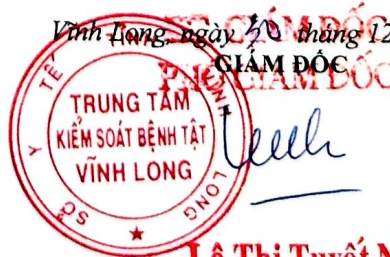 Vĩnh Long, ngày 30 tháng 12
GIÁM ĐỐC
PHÓ GIÁM ĐỐC
SỞ Y TẾ
TRUNG TÂM
KIỂM SOÁT BỆNH TẬT
VĨNH LONG
LONG
Lê Thị Tuyết N